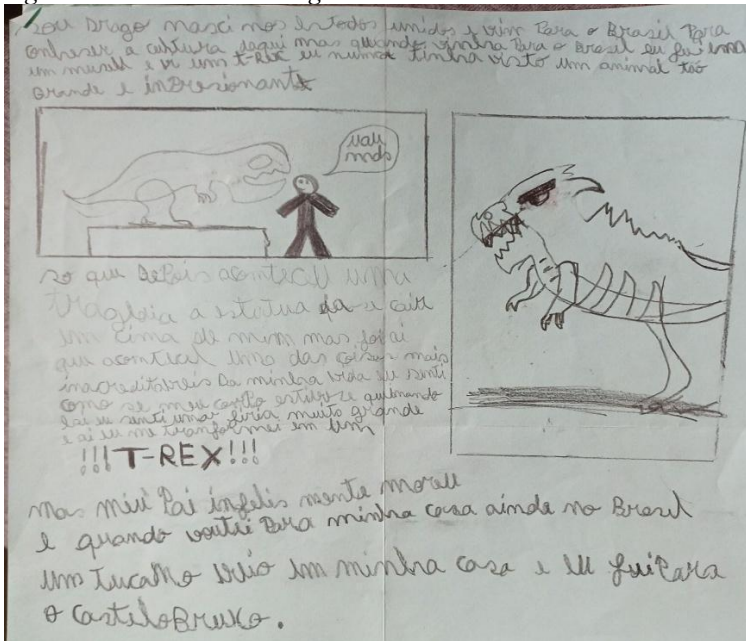 sou Drago nasci nos Estados unidos e vim Para o Brasil Para
conheser a cultura daqui mas quando vinha Para o Brasil eu fui em
um museu e vi um t-Rex eu nunca tinha visto um animal tão
Grande e inpresionante
uau
só que Depois aconteceu uma
tragedia a estatua cair
em cima de mim mas foi ai
que aconteceu uma das coisas mais
inacreditaveis Da minha vida eu senti
como se meu corpo estivese queimando
e ai eu senti uma furia muito grande
e ai eu me transformei em um
!!!T-REX!!!
mas meu Pai infelis mente moreu
e quando voutei Para minha casa ainda no Brasil
um tucano veio em minha casa e eu fui Para
o CasteloBruxo.